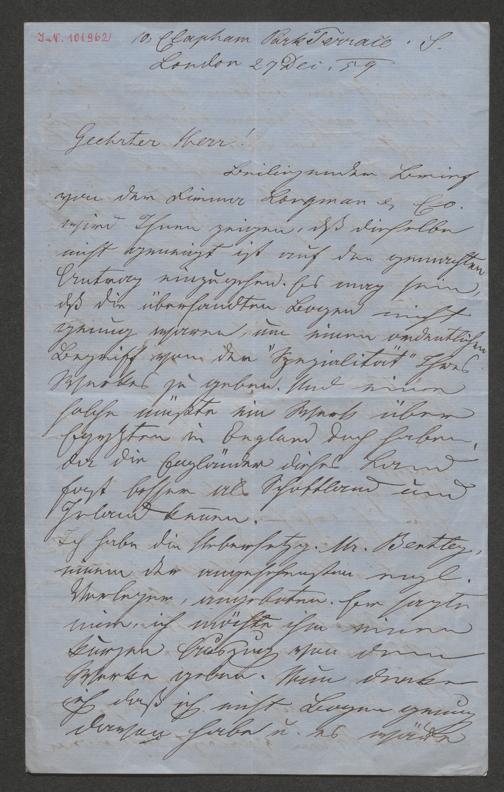 J.N. 101962
10, Clapham Park Terrace. S.
London 27 Dec. 59
Geehrter Herr!
Beiliegender Brief
von der Firma Longman & Co.
wird Ihnen zeigen, daß dieselbe
nicht geneigt ist auf den gemachten
Antrag einzugehen. Es mag sein,
daß die übersandten Bogen nicht
genug waren, um einen ordentlichen
Begriff von der "Spezialität" Ihres
Werkes zu geben. Und eine
solche müßte ein Werk über
Egypten in England doch haben,
da die Engländer dieses Land
fast besser als Schottland und
Irland kennen.
Ich habe die Uebersetzg. Mr. Bentley,
einem der angesehensten engl.
Verleger, angeboten. Er sagte
mir, ich möchte ihm einen
kurzen Auszug von dem
Werke geben. Nun denke
ich daß ich nicht Bogen genug
davon habe u. es wäre